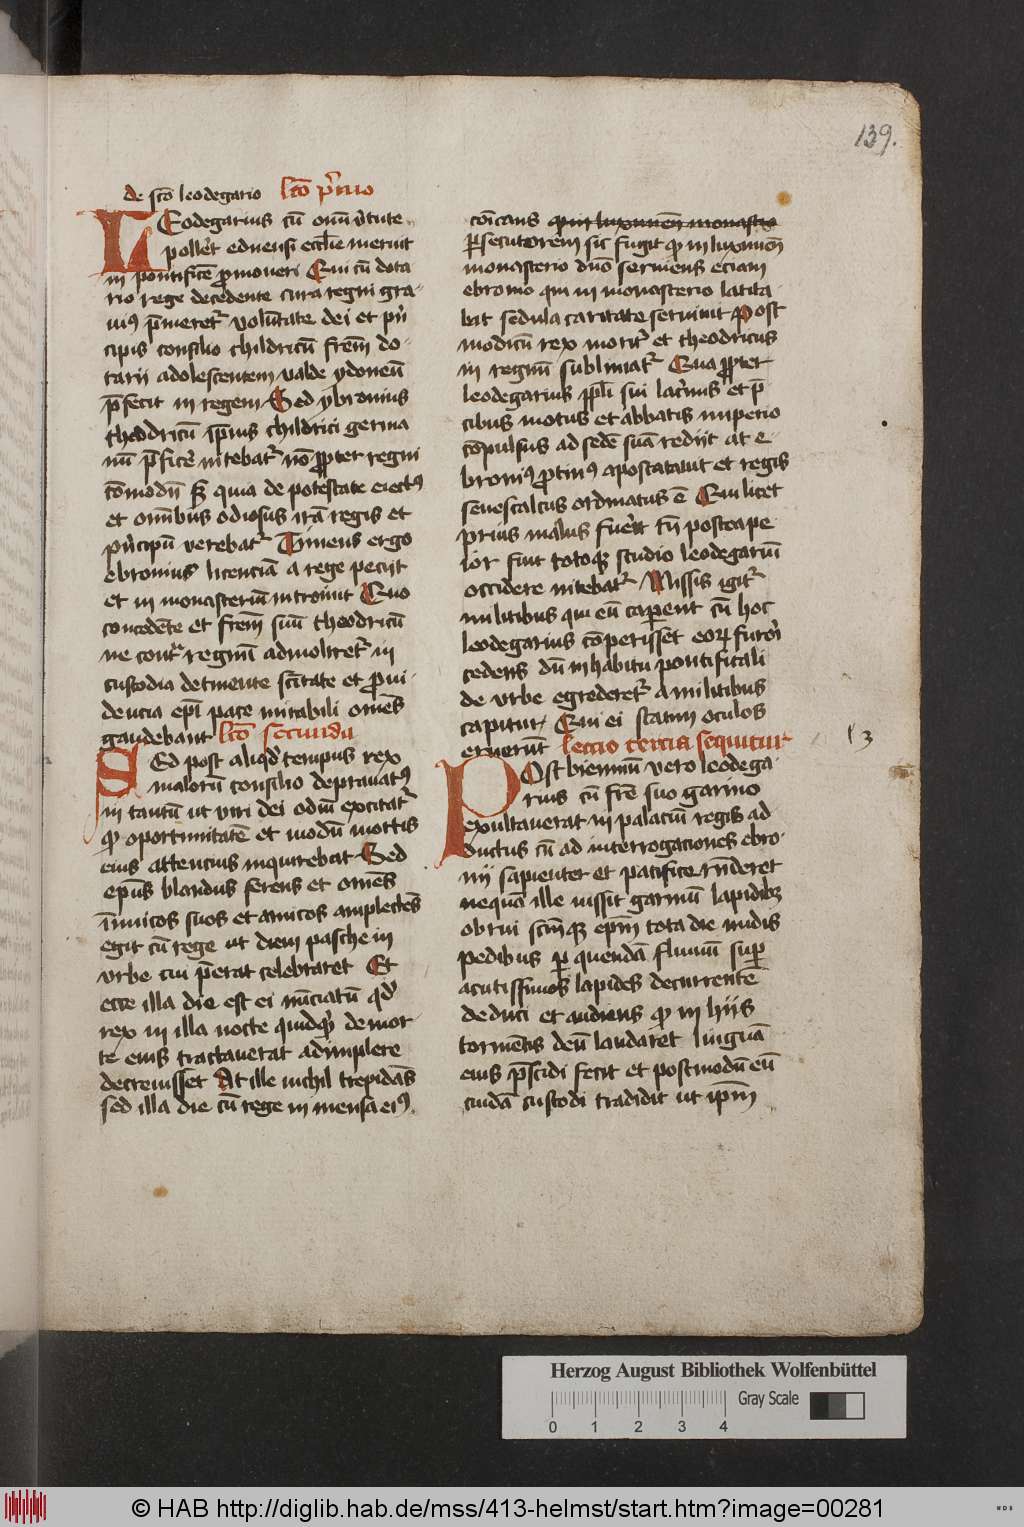 139.
de sco leodegario lco pͥmo
LEodegarius cū om̄i v̓tute
poller̓t eduensi eccl̄ie meruit
in pontificē ꝓmoveri Cui cū dota
rio rege decedente cura regni gra
uiꝰ p̄meretꝛ̓ volūtate dei et pͥn
cipis consilio childricū frēm do
tarii adolescentem valde ydoneū
p̄fecit in regem Sed ybronius
theodricū ip̄ius childrici germa
nū p̄ficē nitebatꝛ̓ nō ꝓpter regni
cōmodū sꝫ quia de potestate eiectꝰ
et omībus odiosus irā regis et
pͥncipū verebatꝛ̓ Timens ergo
ebronius licenciā a rege peciit
et in monasteriū introiuit Quo
concedēte et frēm suū theodricū
ne contͣ regnū admoliretꝛ̓ in
custodia detinente sc̄itate et ꝓui
dencia ep̄i pace mirabili om̄es
gaudebant lco̅ secunda
SEd post aliqd̓ tempus rex
malorū consilio deprauatꝰ
in tantū ut viri dei odiū excitatꝛ̓
qͥ oportunitatē et modū mortis
eius attencius inquirebat Sed
ep̄us blandus ferens et om̄es
inimicos suos et amicos amplectēs
egit cū rege ut diem pasche in
vrbe cui p̄erat celebraret Et
ecce illa die est ei nūciatū qd̓
rex in illa nocte quidqͥd de mor
te eius tractauerat adimplere
decreuisset At ille nichil trepidās
sed illa die cū rege in mensa eiꝰ
cōicans qui in luxouiēn monastio
ꝑsecutorem sic fugit qͥ in luxouiēn
monasterio dn̄o seruiens eciam
ebronio qui in monasterio latita
bat sedula caritate seruiuit Post
modicū rex moritꝛ̓ et theodricus
in regnū sublimatꝛ̓ Qua ꝓpter
leodegarius ppl̄i sui lacͥmis et p̄
cibus motus et abbatis imperio
cōpulsus ad sedē suā rediit at e
broniꝰ ꝓtinꝰ apostatauit et regis
senescalcus ordinatus ē Qui licet
prius malus fuer̓it tn̄ postea pe
ior fuit totoqꝫ studio leodegariū
occidere nitebatꝛ̓ Missis igitꝛ̓
militibus qui eū caper̓ent cū hoc
leodegarius cōperisset eoꝝ furoͥ
cedens dū in habitu pontificali
de vrbe egrederetꝛ̓ a militibus
capitur Qui ei statim oculos
eruerūt leccio tercia sequitur l 3
POst bienniū vero leodega
rius cū frē suo garino
exultauerat in palaciū regis ad
ductus cū ad interrogaciones ebro
nii sapienter et pacifice rn̄deret
nequā ille iussit garinū lapidibꝫ
obrui scm̄qꝫ ep̄m tota die nudis
pedibus ꝑ quendā fluuiū suꝑ
acutissimos lapides decurrentē
deduci et audiens qͥ in hiis
tormētis deū laudaret linguā
eius p̄scidi fecit et postmodū eū
cuidā custodi tradidit ut ip̄m
Herzog August Bibliothek Wolfenbüttel
Gray Scale
0 1 2 3 4
© HAB http://diglib.hab.de/mss/413-helmst/start.htm?image=00281